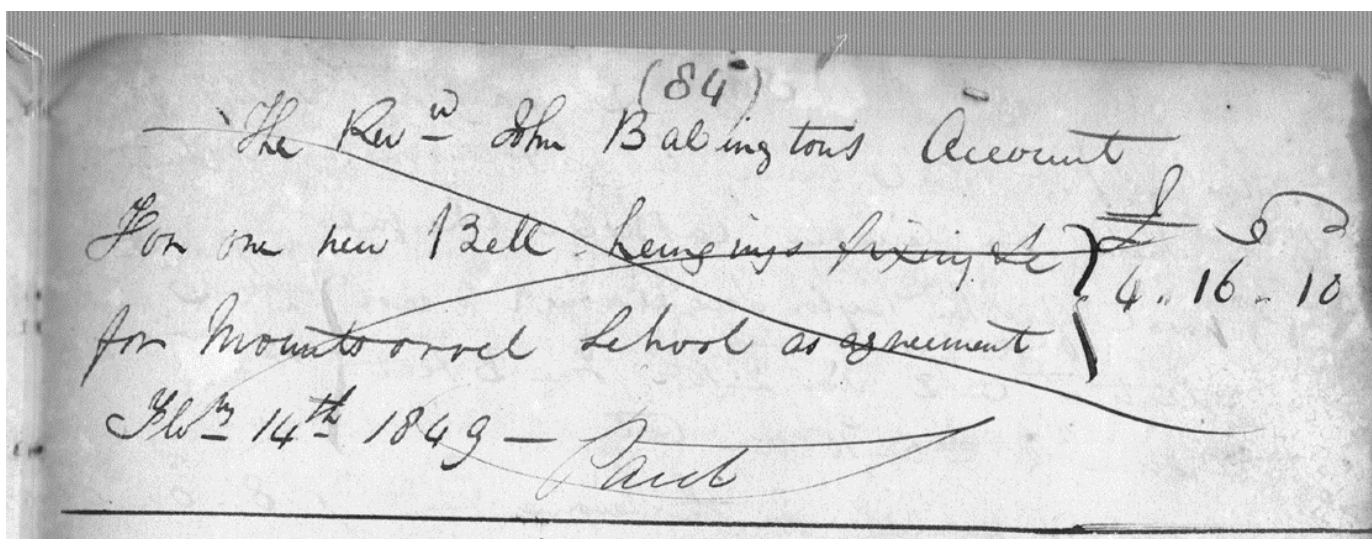 (84)
The Revd John Babingtons Account
For one new Bell hengings fixing &c £ S D
for Mountsorrel School as agreement 4 .. 16 .. 10
Feby 14th 1849 — Paid